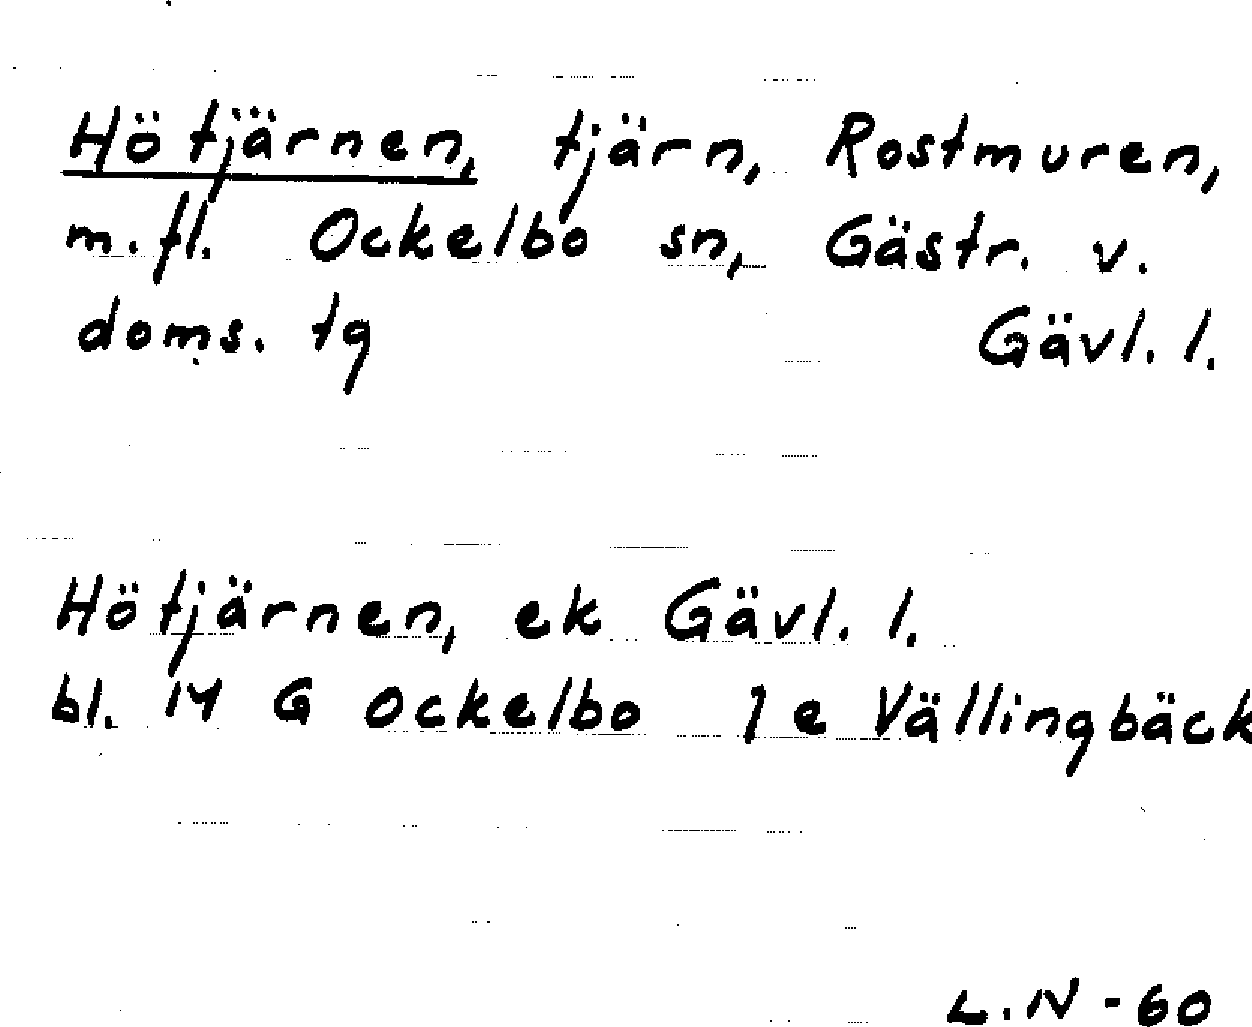 Hötjärnen, tjärn, Rostmuren,
m.fl. Ockelbo sn, Gästr. v.
doms. tg Gävl. l.
Hötjärnen, ek Gävl. l.
bl. 14 G Ockelbo 1 e Vällingbäck
L.N - 60